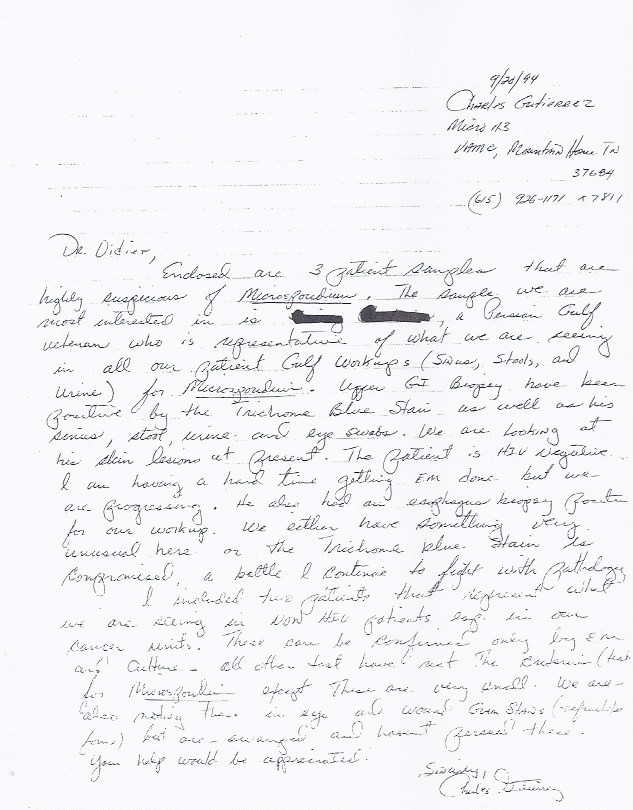 9/20/94
Charles Gutierrez
Micro 113
VAMC, Mountain Home TN
37684
(615) 926-1171 x7811
Dr. Didier,
Enclosed are 3 patient samples that are
highly suspicious of Microsporidium. The sample we are
most interested in is a Persian Gulf
veteran who is representative of what we are seeing
in all our patient Gulf workups (Sinus, Stools, and
Urine) for Microsporidium. Upper GI Biopsy have been
positive by the Trichrome Blue Stain as well as his
sinus, stool, urine and eye swabs. We are looking at
his skin lesions at present. The patient is HIV Negative.
I am having a hard time getting EM done but we
are progressing. He also had an esophagus biopsy positive
for our workup. We either have something very
unusual here or the Trichrome blue stain is
compromised, a battle I continue to fight with pathology.
I included two patients that represent what
we are seeing in NON HIV patients esp. in our
cancer units. These can be confirmed only by EM
and Culture - all other test have met the
for Microsporidium except these are very small. We are
also noting these in eye and wound Gram Stains
forms) but are and havent pursued these.
Your help would be appreciated.
Sincerely,
Charles Gutierrez